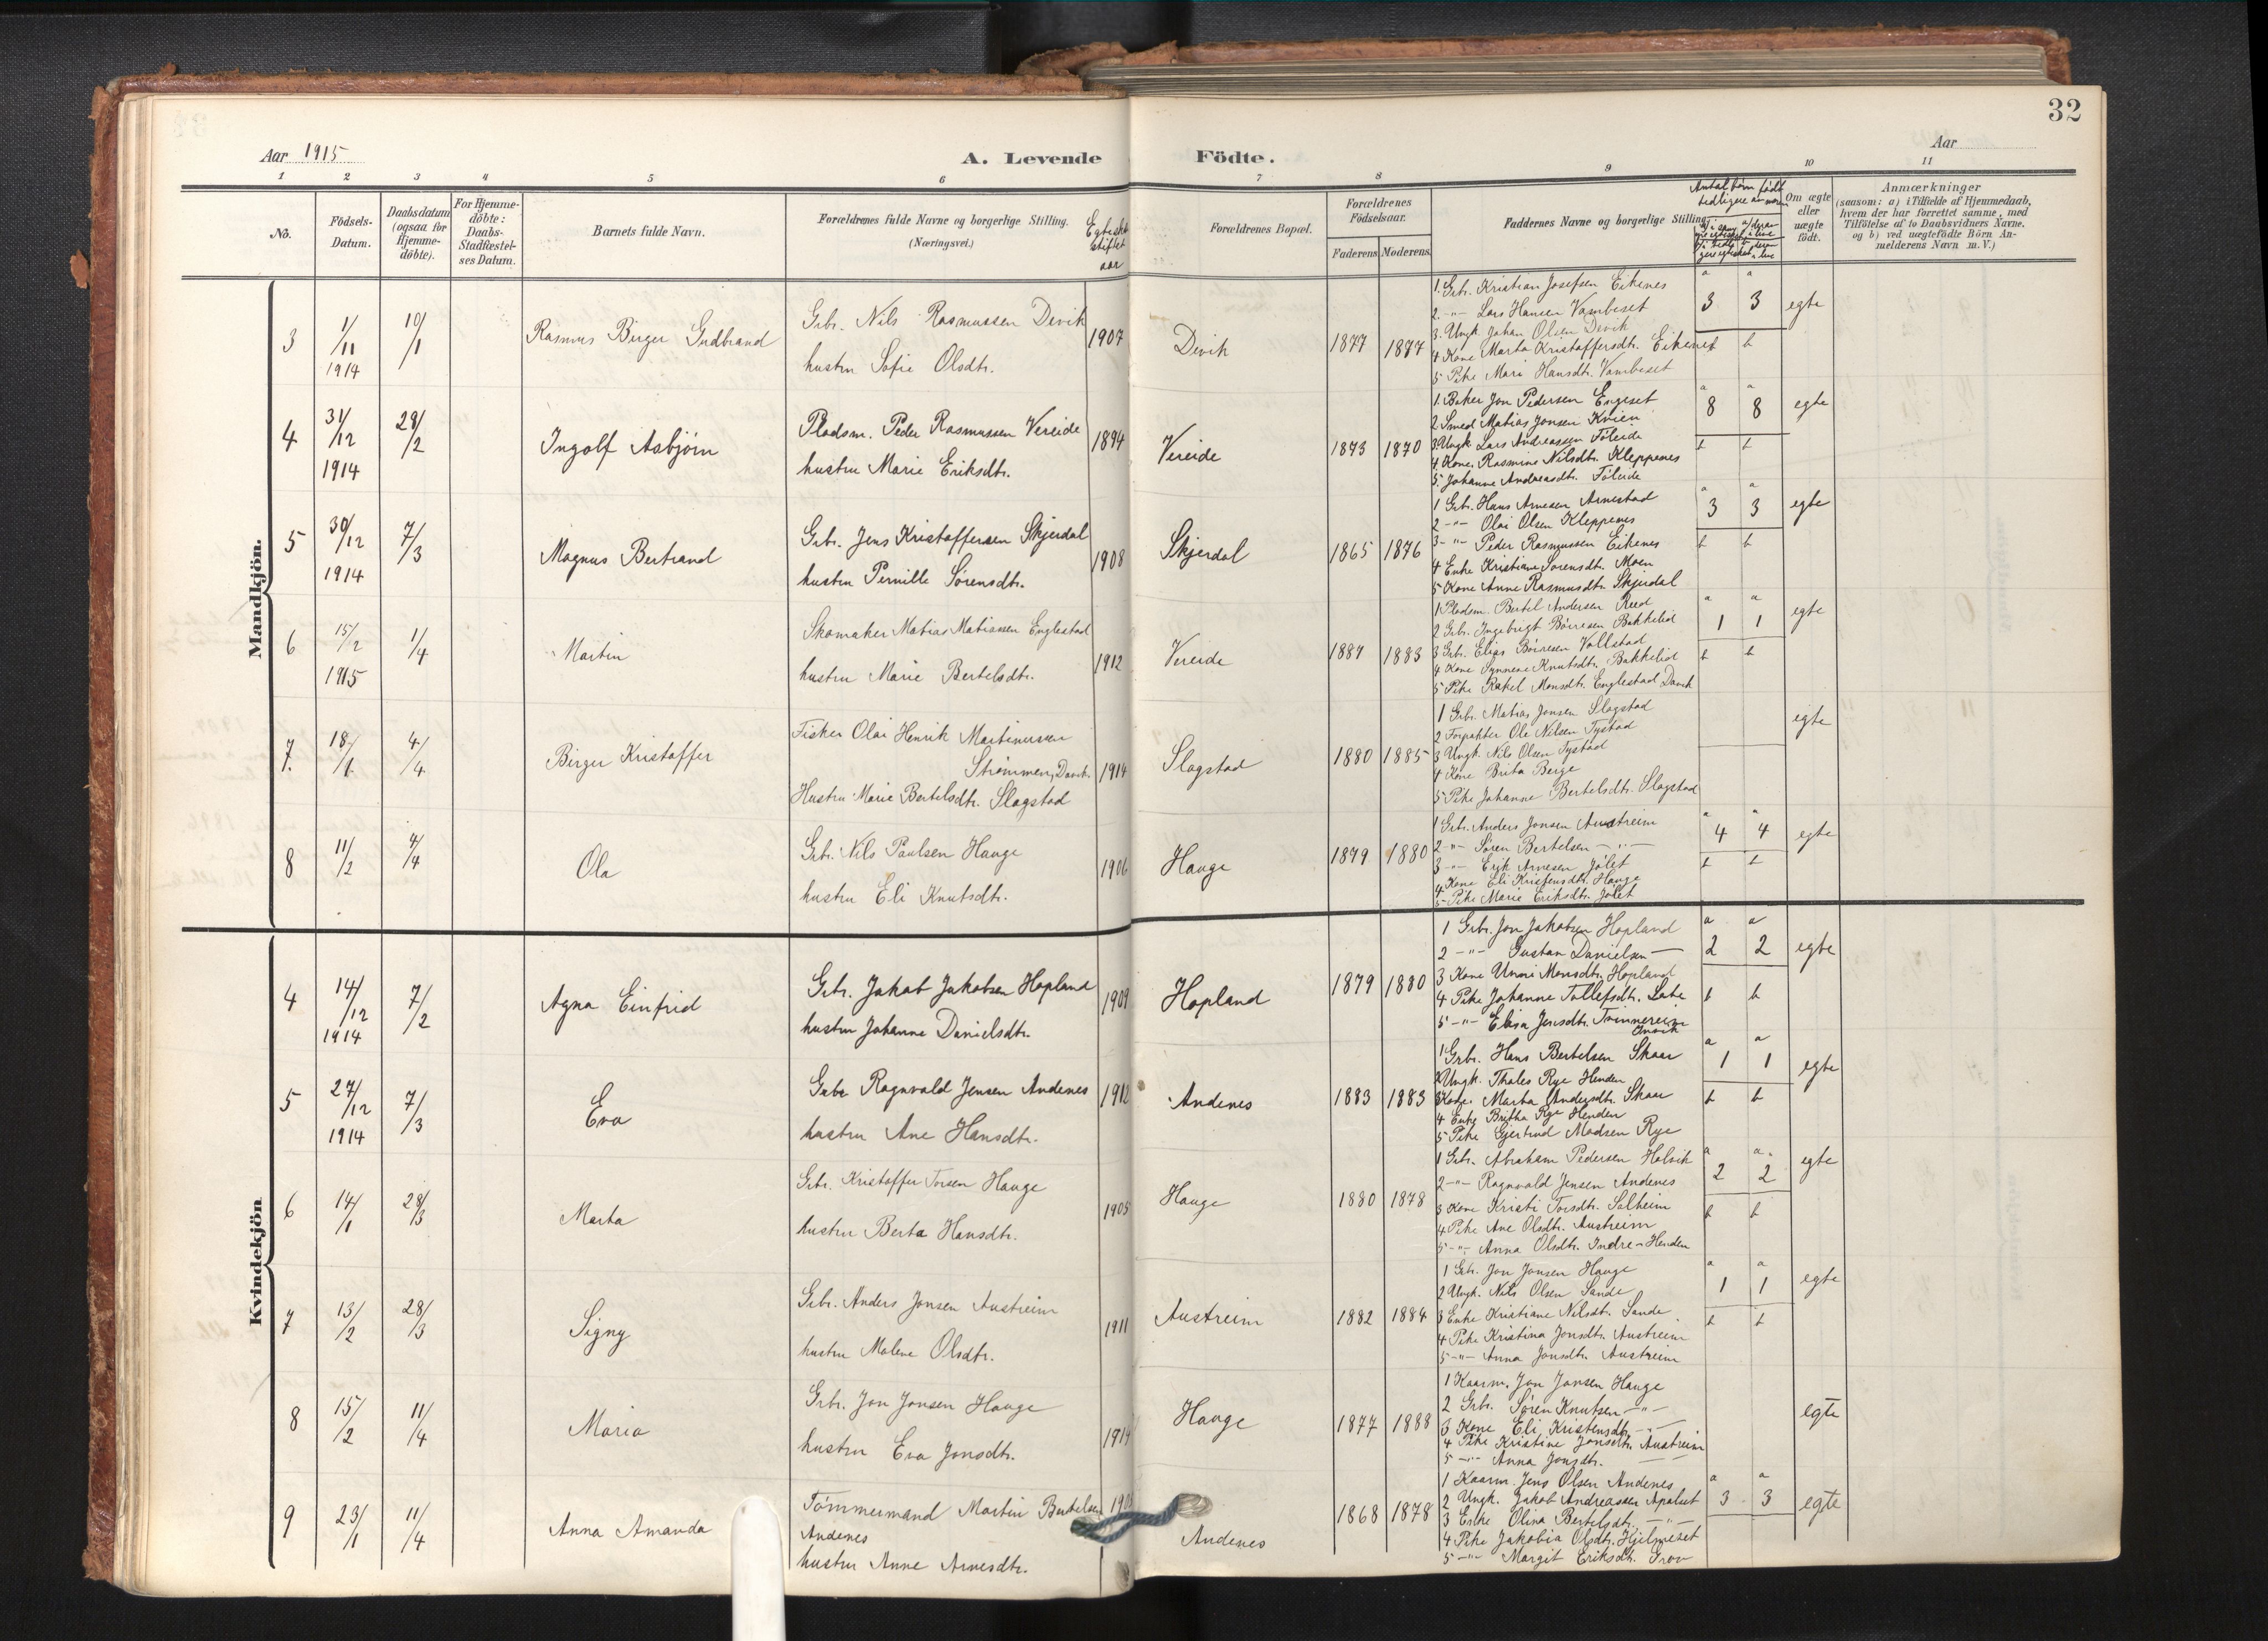 32
Aar 1915
A. Levende Födte.
Aar
1 2 3 4 5 6 7 8 9 10 11
No.
Födsels-Datum.
Daabsdatum (ogsaa for Hjemme-döbte).
For Hjemme-döbte: Daabs-Stadfæstel-ses Datum.
Barnets fulde Navn.
Forældrenes fulde Navne og borgerlige Stilling.
(Næringsvei.)
Egtesk. stiftet aar
Forældrenes Bopæl.
Forældrenes Födselsaar.
Faderens Moderens.
Faddernes Navne og borgerlige Stilling.
Antal børn født tidligere av moren
Om ægte eller uægte födt.
Anmærkninger
(saasom: a) i Tilfælde af Hjemmedaab, hvem der har forrettet samme, med Tilföielse af to Daabsvidners Navne. og b) ved uægtefödte Börn An-melderens Navn m.V.)
Mandkjön.
3
1/11 1914
10/1
Rasmus Birger Gudbrand
Grbr. Nils Rasmussen Devik
hustru Sofie Olsdtr.
1907
Devik
1877 1877
1. Grb. Kristian Josefsen Eikenes
2. -"- Lars Hansen Vambeset
3. Ungk. Johan Olsen Devik
4 Kone Marta Kristoffersdt. Eikenes
5 Pike Mari Hansdt. Vambeset
a 3 a 3
b
egte
4
31/12 1914
28/2
Ingolf Asbjørn
Pladsm. Peder Rasmussen Vereide
hustru Marie Eriksdtr.
1894
Vereide
1873 1870
1. Baker Jon Pedersen Engeset
2 Smed Matias Jonsen Kvien
3. Ungk. Lars Andreassen Føleide
4. Kone. Rasmine Nilsdtr. Kleppenes
5. Johanne Andreasdtr. Føleide
a 8 a 8
b b
egte
5
30/12 1914
7/3
Magnus Bertrand
Grb. Jens Kristoffersen Skjerdal
hustru Pernille Sørensdtr.
1908
Skjerdal
1865 1876
1 Grb. Hans Arnesen Arnestad
2 -"- Olai Olsen Kleppenes
3 -"- Peder Rasmussen Eikenes
4 Enke Kristiane Sorensdt. Moen
5 Kone Anne Rasmusdt. Skjerdal
a 3 a 3
b b
egte
6
15/2 1915
1/4
Martin
Skomaker Matias Matiassen Englestad
hustru Marie Bertelsdtr.
1912
Vereide
1887 1883
1 Pladsm. Bertel Andersen Reed
2 Grb. Ingebrigt Børresen Bakkelid
3 Grb. Elias Børresen Vollstad
4 Kone Synneve Knutsdt. Bakkelid
5 Pike Rakel Monsdt. Englestad Davik
a 1 a 1
b b
egte
7.
18/1
4/4
Birger Kristoffer
Fisker Olai Henrik Martinussen
Strømmen, Davik.
Hustru Marie Bertelsdtr. Slagstad
1914
Slagstad
1880 1885
1 Grb. Matias Jonsen Slagstad
2 Forpakter Ole Nilsen Tystad
3 Ungk. Nils Olsen Tystad
4 Kone Brita Berge
5 Pike Johanne Bertelsdt. Slagstad
egte
8
11/2
4/4
Ola
Grb. Nils Paulsen Hauge
hustru Eli Knutsdtr.
1906
Hauge
1879 1880
1 Grb. Anders Jonsen Austreim
2 -"- Søren Bertelsen -"-
3 -"- Erik Arnesen Jølet
4 Kone Eli Kristensdt. Hauge
5 Pike Marie Eriksdtr. Jølet
a 4 a 4
b b
egte
Kvindekjön
4
14/12 1914
7/2
Agna Einfrid
Grb. Jakob Jakobsen Hopland
hustru Johanne Danielsdtr.
1909
Hopland
1879 1880
1 Grb. Jon Jakobsen Hopland
2 -"- Gustav Danielsen -
3 Kone Unni Monsdtr. Hopland
4 Pike Johanne Tollefsdt. Lote
5 -"- Elisa Jensdt. Tvinnereim
Invik
a 2 a 2
b b
egte
5
27/12 1914
7/3
Eva
Grbr Ragnvald Jensen Andenes
hustru Ane Hansdtr.
1912
Andenes
1883 1883
1 Grb. Hans Bertelsen Skaar
2 Ungk. Thales Rye Henden
3 Kone. Marta Andersdt. Skaar
4 Enke Britha Rye Henden
5 Pike Gjertrud Madsen Rye
a 1 a 1
b b
egte
6
14/1
28/3
Marta
Grb. Kristoffer Torsen Hauge
hustru Berta Hansdtr.
1905
Hauge
1880 1878
1 Grb. Abraham Pedersen Holvik
2 -"- Ragnvald Jensen Andenes
3 Kone Kristi Torsdt. Solheim
4 Pike Ane Olsdt. Austreim
5 -"- Anna Olsdtr. Indre-Henden
a 2 a. 2
b b
egte
7
13/2
28/3
Signy
Grb. Anders Jonsen Austreim
hustru Malene Olsdtr.
1911
Austreim
1882 1884
1 Grb. Jon Jonsen Hauge
2 Ungk. Nils Olsen Sande
3 Enke Kristiane Nilsdt. Sande
4 Pike Kristina Jonsdtr. Austreim
5 -"- Anna Jonsdtr. Austreim
a 1 a 1
b b
egte
8
15/2
11/4
Maria
Grb. Jon Jonsen Hauge
hustru Eva Jonsdtr.
1914
Hauge
1877 1888
1 Kaarm. Jon Jonsen Hauge
2 Grb. Søren Knutsen -"-
3 Kone Eli Kristensdt. -"-
4 Pike Kristine Jonsdtr. Austreim
5 -"- Anna Jonsdt.
egte
9
23/1
11/4
Anna Amanda
Tømmermand Martin Bertelsen
Andenes
hustru Anne Arnesdtr.
Andenes
1868 1878
1 Kaarm. Jens Olsen Andenes
2 Ungk. Jakob Andreassen Apalset
3 Enke Olina Bertelsdt. -"-
4 Pike Jakobia Olsdtr. Hjelmeset
5 -"- Margit Eriksdt. Grov
a 3 a 3
egte